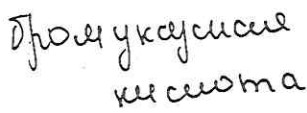 бромуксусная
кислота